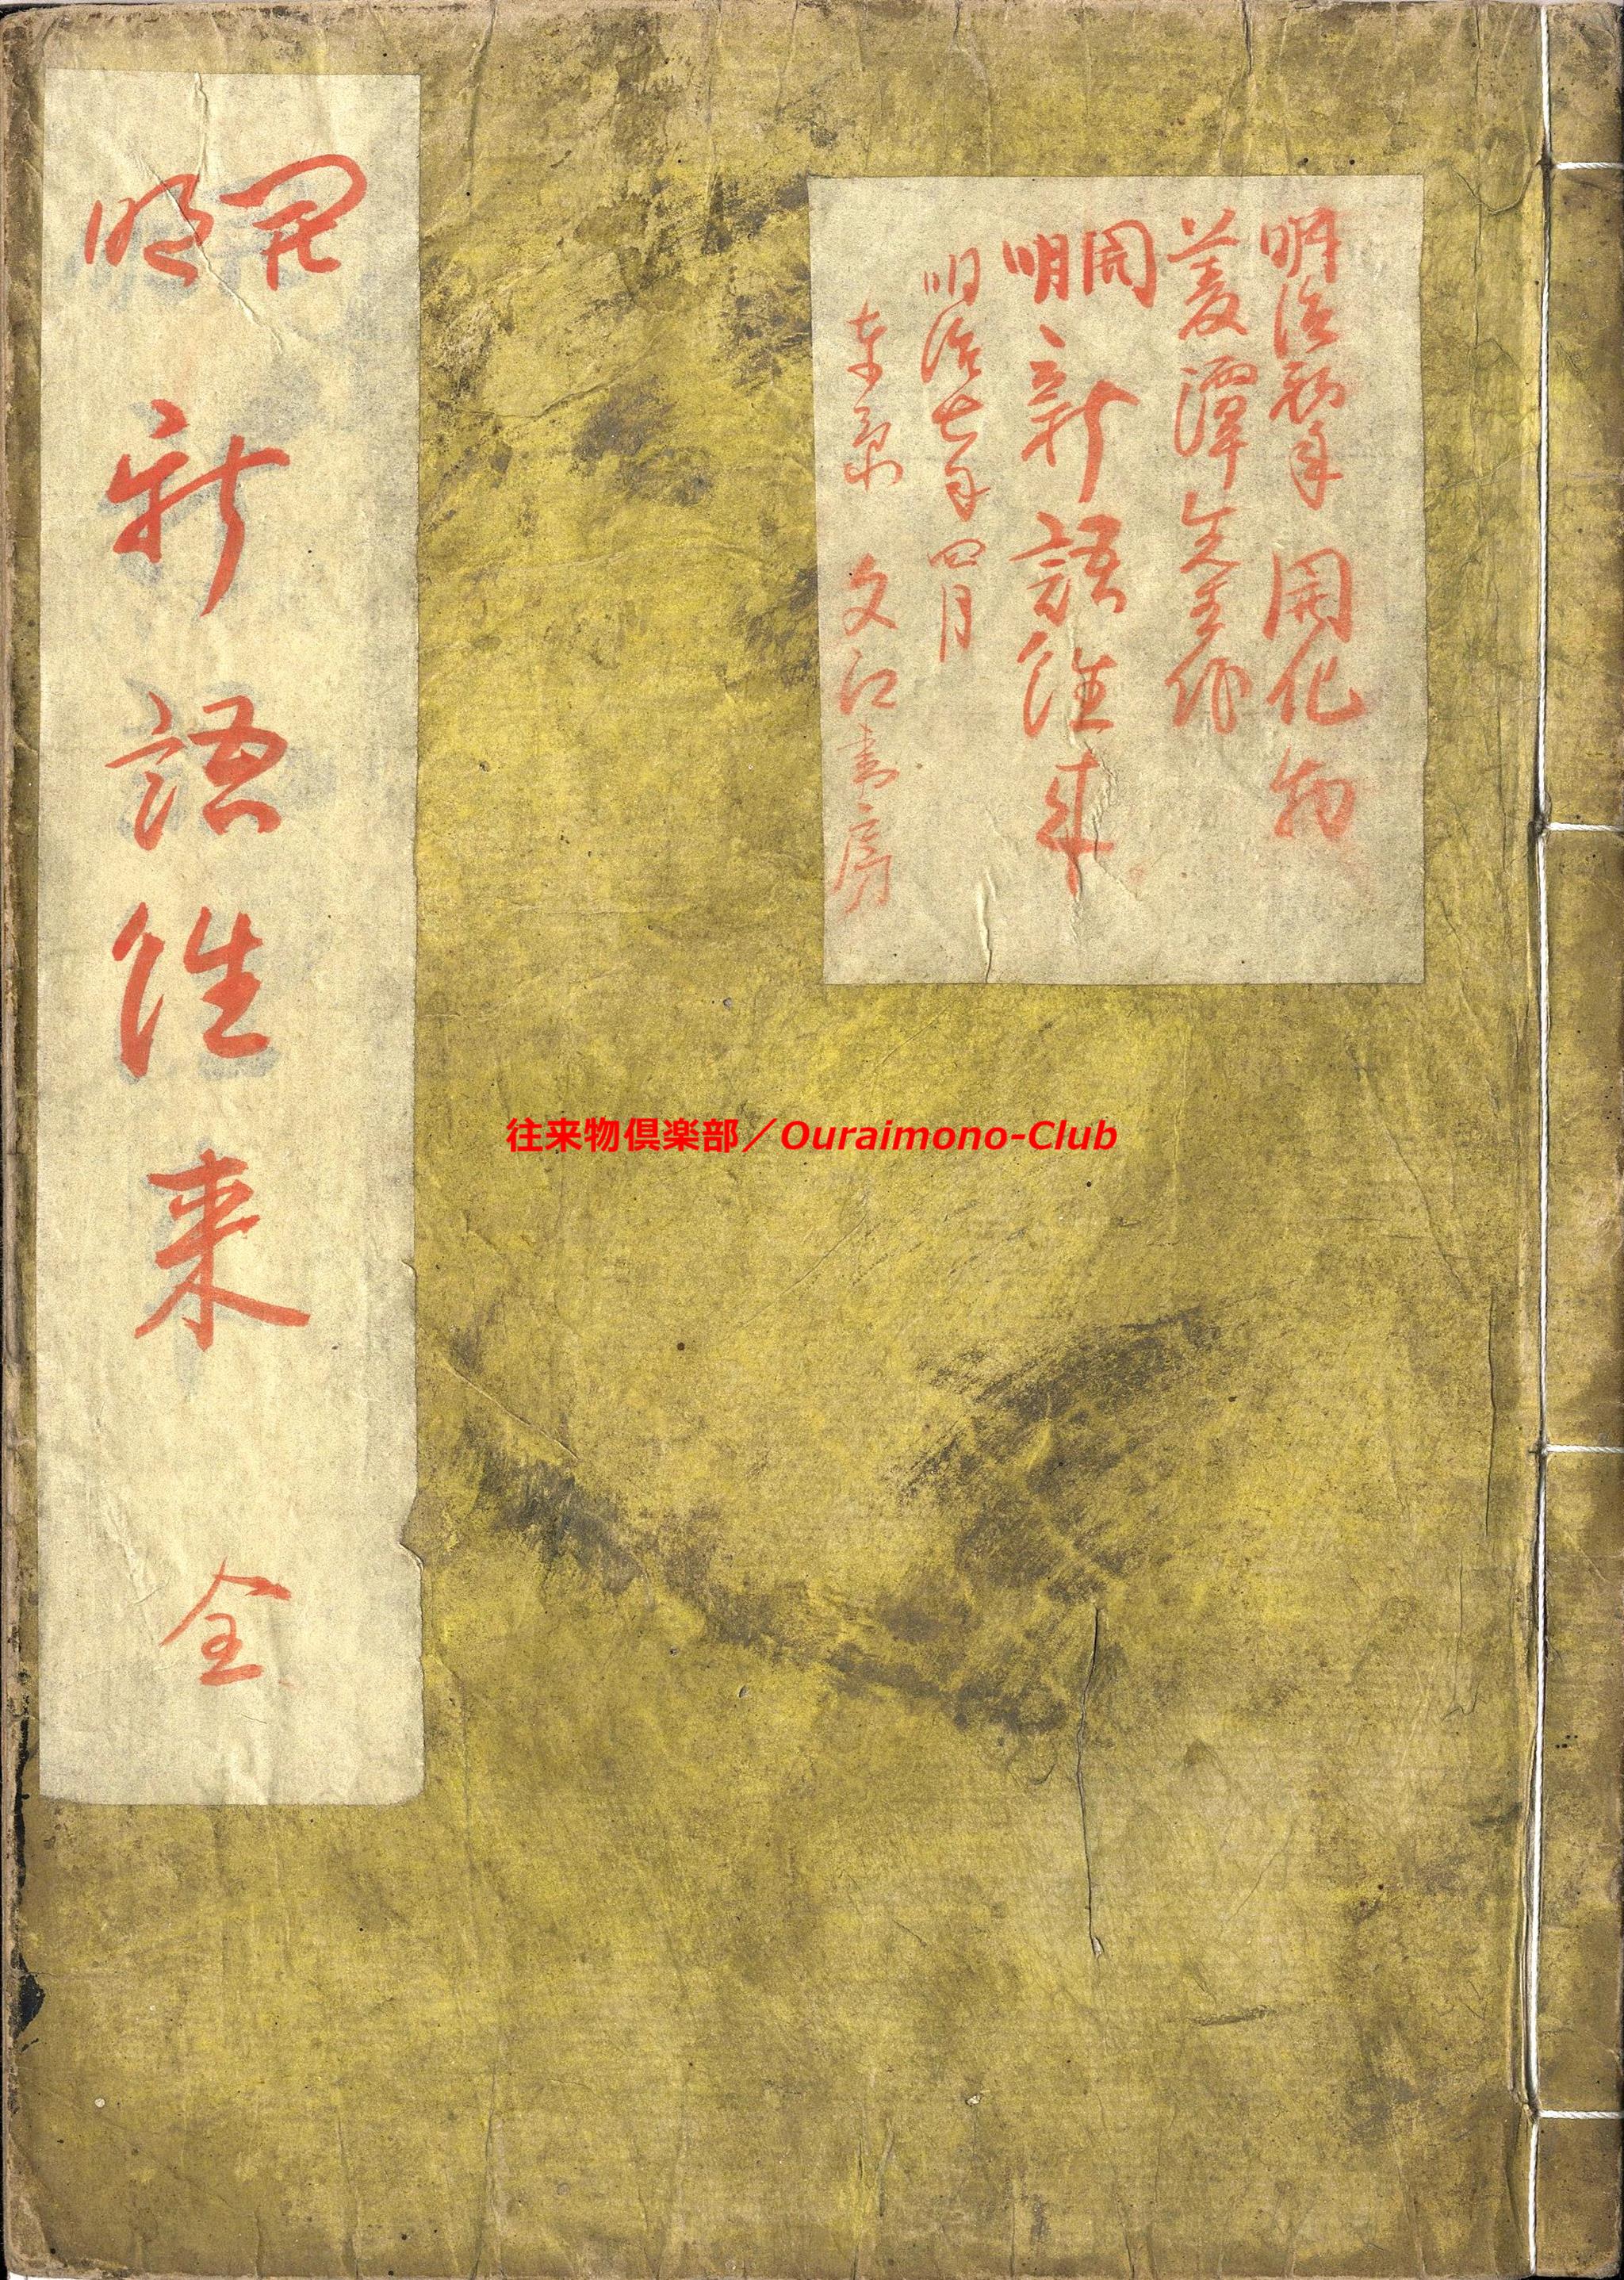 明治初年 開化物
菱潭先生作
開明 新語往来
明治七年四月
東京 文江書房
開明 新語往来 全
往来物倶楽部／Ouraimono-Club